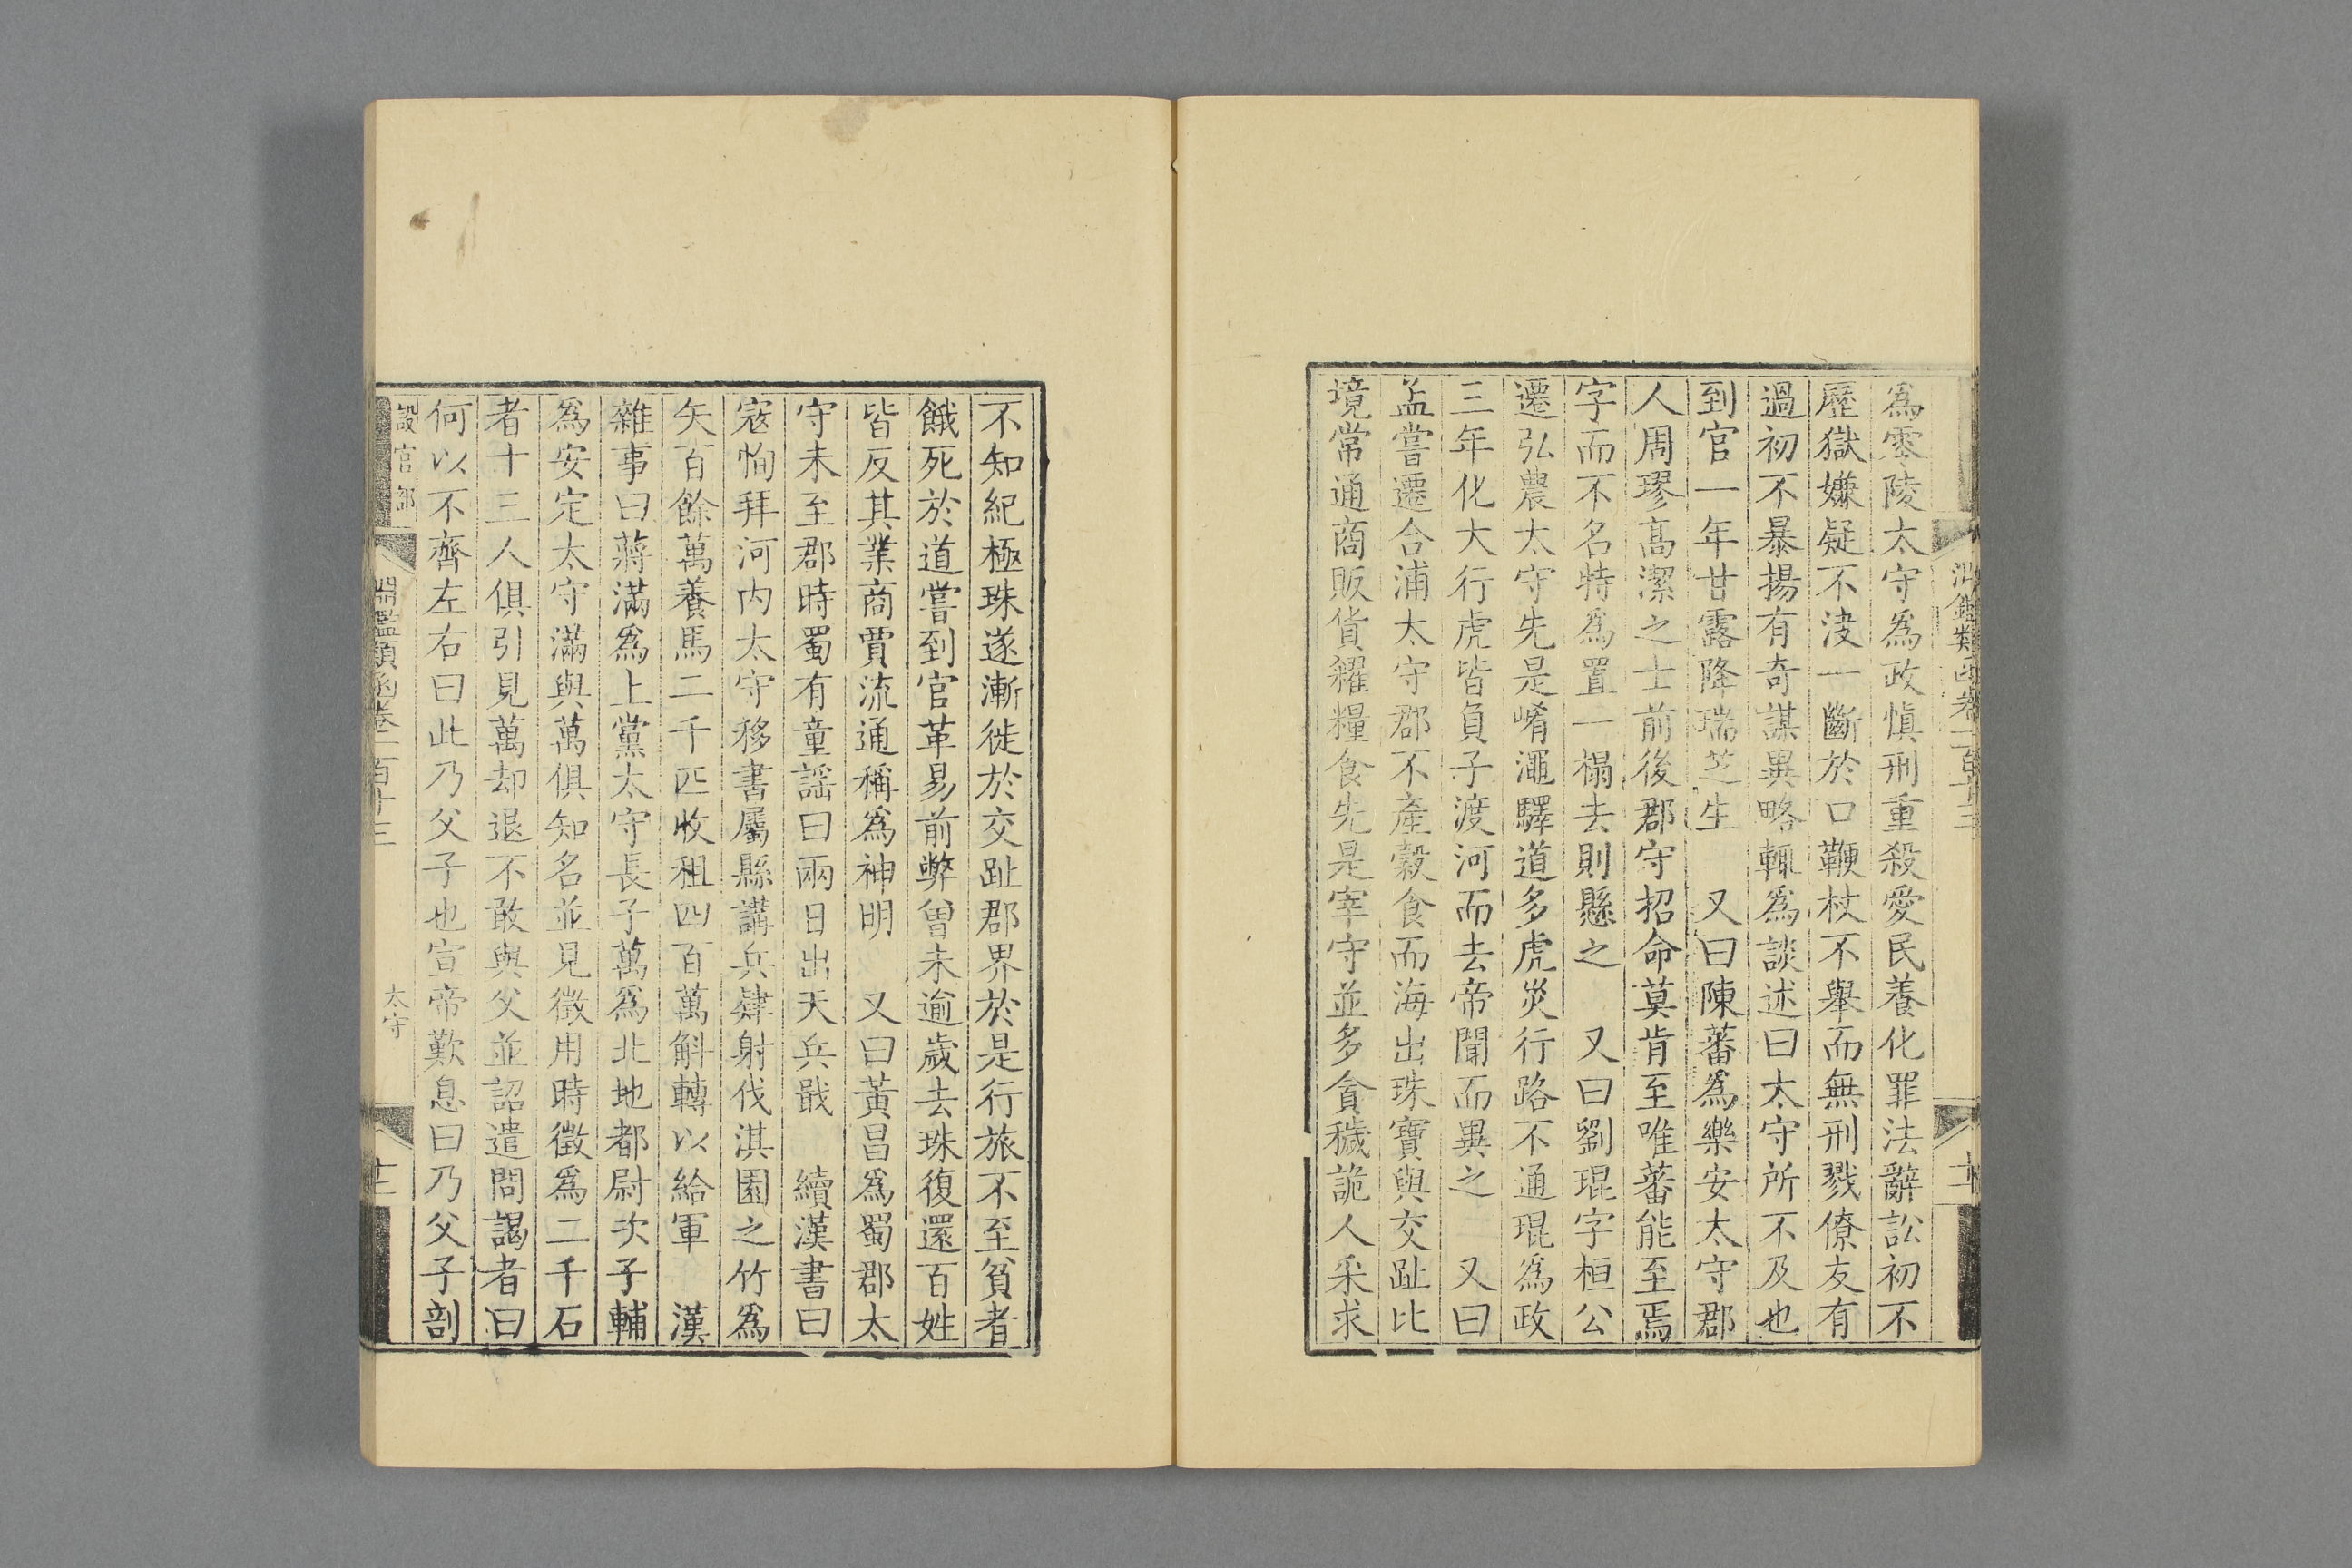 淵鑑類函卷一百十三
十一
爲零陵太守爲政愼刑重殺愛民養化罪法辭訟初不
歷獄嫌疑不决一斷於口鞭杖不舉而無刑戮僚友有
過初不暴揚有奇謀異略輒爲談述曰太守所不及也
到官一年甘露降瑞芝生　又曰陳蕃爲樂安太守郡
人周璆高潔之士前後郡守招命莫肯至唯蕃能至焉
字而不名特爲置一榻去則懸之　又曰劉琨字桓公
遷弘農太守先是崤澠驛道多虎災行路不通琨爲政
三年化大行虎皆負子渡河而去帝聞而異之　又曰
孟嘗遷合浦太守郡不產穀食而海出珠寶與交趾比
境常通商販貨糴糧食先是宰守並多貪穢詭人采求
不知紀極珠遂漸徙於交趾郡界於是行旅不至貧者
餓死於道嘗到官革易前弊曾未逾歲去珠復還百姓
皆反其業商賈流通稱爲神明　又曰黃昌爲蜀郡太
守未至郡時蜀有童謡曰兩日出天兵戢　續漢書曰
寇恂拜河内太守移書屬縣講兵肄射伐淇園之竹爲
矢百餘萬養馬二千匹收租四百萬斛轉以給軍　漢
雜事曰蔣滿爲上黨太守長子萬爲北地都尉次子輔
爲安定太守滿與萬俱知名並見徵用時徵爲二千石
者十三人俱引見萬却退不敢與父並詔遣問謁者曰
何以不齊左右曰此乃父子也宣帝歎息曰乃父子剖
設官部
淵鑑類函卷一百十三
太守
十二